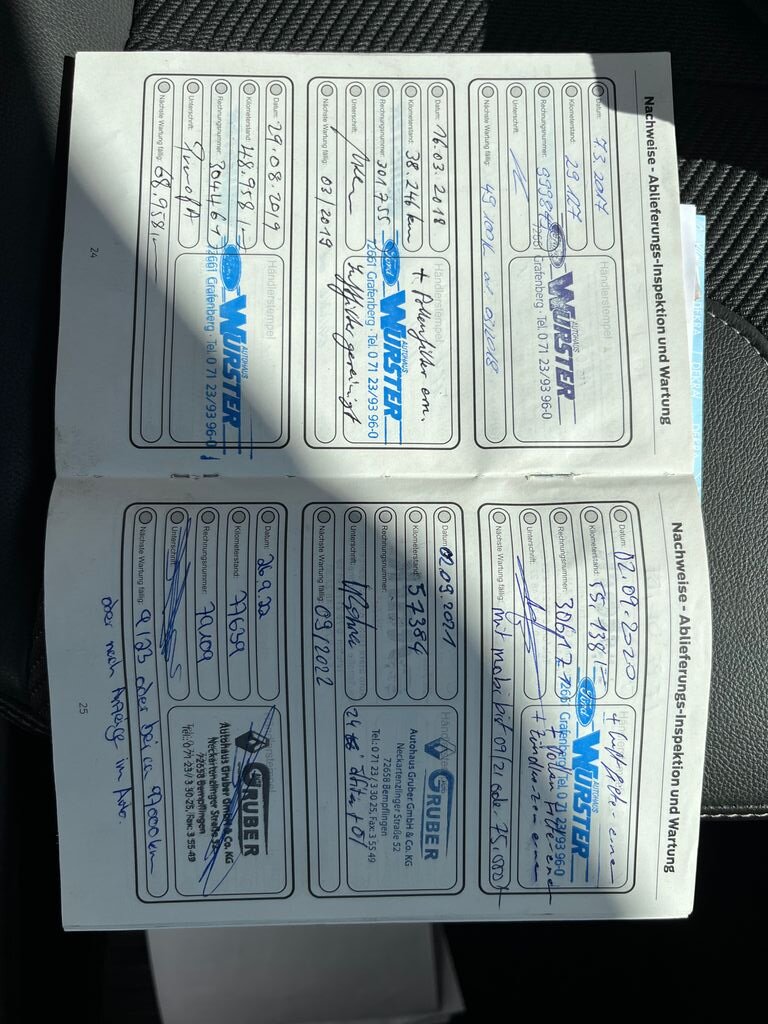 Nachweise - Ablieferungs-Inspektion und Wartung
Datum: 7.3.2017
Kilometerstand: 29 127
Rechnungsnummer:
Unterschrift:
Nächste Wartung fällig:
Händlerstempel
Ford AUTOHAUS WURSTER
72661 Grafenberg · Tel. 0 71 23/93 96-0
Datum: 16.03.2018
Kilometerstand: 38 246 km
Rechnungsnummer: 301755
Unterschrift:
Nächste Wartung fällig: 03/2019
Händlerstempel
+ Pollenfilter ern.
Ford AUTOHAUS WURSTER
72661 Grafenberg · Tel. 0 71 23/93 96-0
Luftfilter gereinigt
Datum: 29.08.2019
Kilometerstand: 48.958
Rechnungsnummer: 304461
Unterschrift:
Nächste Wartung fällig: 68.958
Händlerstempel
Ford AUTOHAUS WURSTER
72661 Grafenberg · Tel. 0 71 23/93 96-0
24
Nachweise - Ablieferungs-Inspektion und Wartung
Datum: 02.09.2020
Kilometerstand: 55.138
Rechnungsnummer: 30617
Unterschrift:
Nächste Wartung fällig: mit mobi bis 09/21 od. 75.000
+ Luftfilter
Ford AUTOHAUS WURSTER
72661 Grafenberg Tel. 0 71 23/93 96-0
+ Pollen Filter
Datum: 02.09.2021
Kilometerstand: 57384
Rechnungsnummer:
Unterschrift:
Nächste Wartung fällig: 09/2022
GRUBER
Autohaus Gruber GmbH & Co. KG
Neckartenzlinger Straße 52
72658 Bempflingen
Tel.: 0 71 23 / 3 30 25, Fax: 3 55 49
Datum: 26.9.22
Kilometerstand: 77639
Rechnungsnummer: 79109
Unterschrift:
Nächste Wartung fällig: 9/23 oder bei ca 97000 km
oder nach Anzeige im Auto.
GRUBER
Autohaus Gruber GmbH & Co. KG
Neckartenzlinger Straße 52
72658 Bempflingen
Tel.: 0 71 23 / 3 30 25, Fax: 3 55 49
25
DEKRA
DEKRA